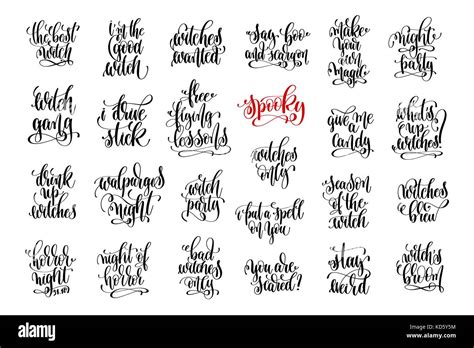 the best
witch
i'm
the
good
witch
witches
wanted
say boo
and scary on
make
your
own
magic
night
of
party
witch
gang
i drive
stick
free
flying
lessons
spooky
give me
a
candy
what's
up
witches?
witches
only
drink
up
witches
walpurgis
night
witch
party
i put a spell
on you
season
of the
witch
witches
brew
horror
night
31.10
night of
horror
bad
witches
only
you are
scared?
stay
weird
witch's
broom
alamy
Image ID: KD5Y5M
www.alamy.com